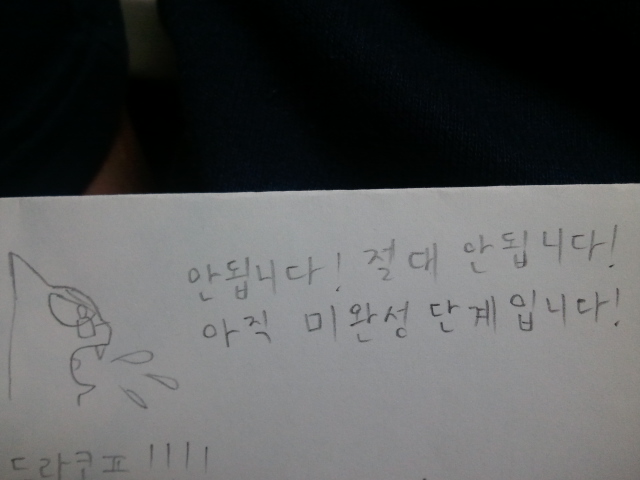 안됩니다! 절대 안됩니다!
아직 미완성 단계입니다!
드라코프!!!!